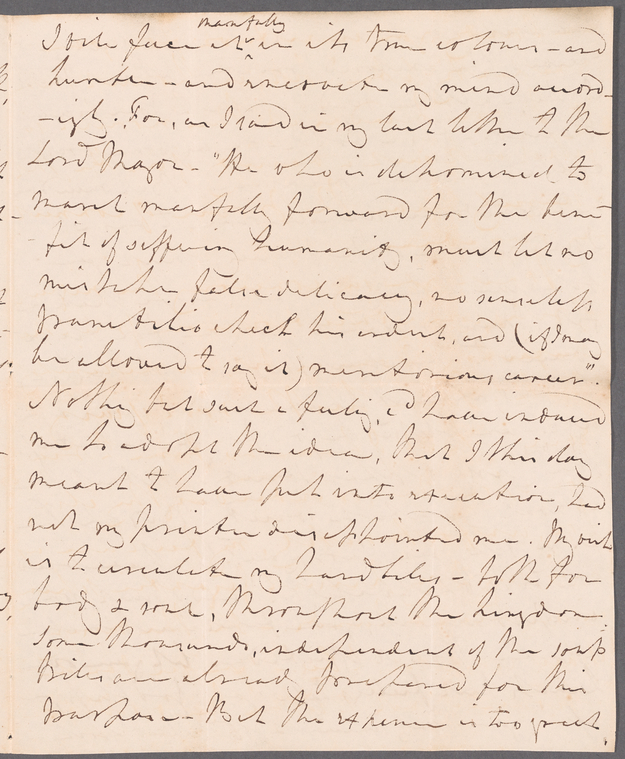 manfully
I will face it in its true colours - and
hunter - and renovate my mind accord-
-ingly. For, as I said in my last letter to the
Lord Mayor - "He who is determined to
march manfully forward for the bene-
-fit of suffering humanity, must let no
mistaken false delicacy, no senseless
punctilio check his ardent, and (if I may
be allowed to say it) meritorious career".
Nothing but such a feeling, cd have induced
me to adopt the idea, that I this day
meant to have put into execution, had
not my printer disappointed me. My wish
is to circulate my handbills - both for
body & soul, throughout the kingdom.
Some thousands, independent of the soup
bills are already prepared for this
purpose - But the expense is too great.